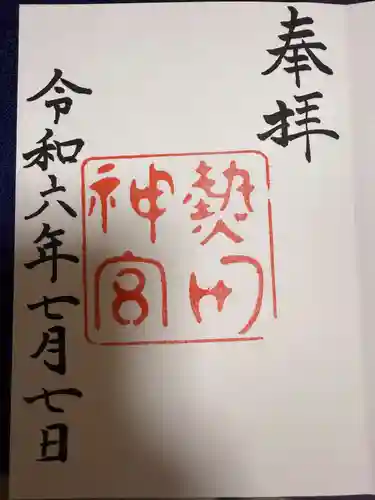 奉拝
熱田
神宮
令和六年七月七日